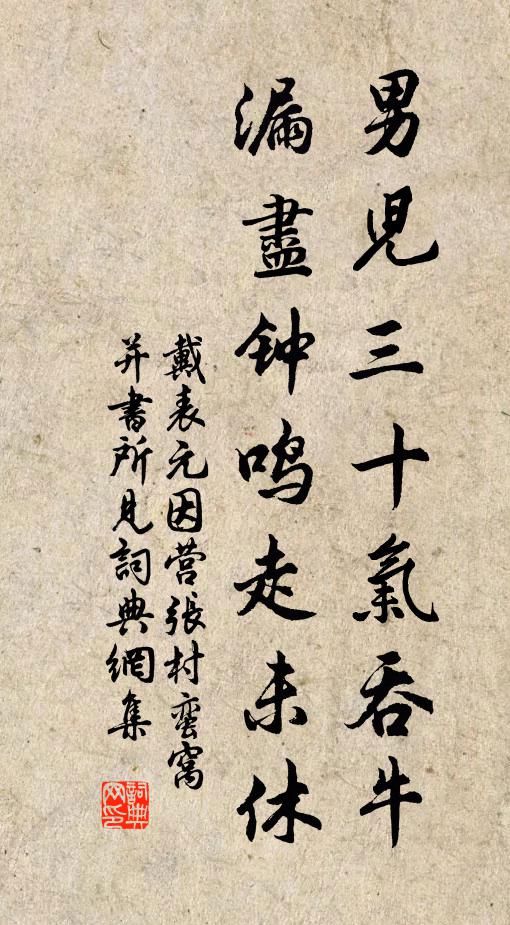 男兒三十氣吞牛
漏盡钟鸣走未休
戴表元因营張村蛮窩
并書所見詞典網集
詞典
网印